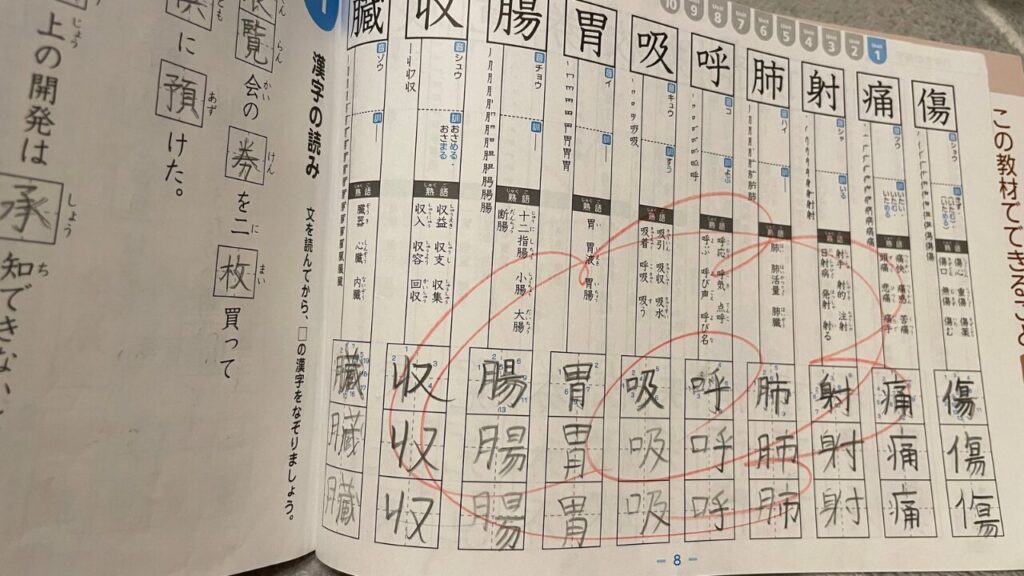 この教材でできること
Unit 1
2
3
4
5
6
7
8
9
10
傷
音 ショウ
熟語
傷心 重傷 傷薬
傷口 無傷 傷む
傷
傷
傷
痛
音 ツウ
訓 いたい
いたむ
いためる
熟語
痛快 痛感 苦痛
頭痛 悲痛 痛手
痛
痛
痛
射
音 シャ
訓 いる
熟語
射手 射的 注射
日射病 発射 射る
射
射
射
肺
音 ハイ
訓
熟語
肺 肺活量 肺臓
肺
肺
肺
呼
音 コ
訓 よぶ
熟語
呼応 呼気 点呼
呼ぶ 呼び声 呼び名
呼
呼
呼
吸
音 キュウ
訓 すう
熟語
吸引 吸収 吸水
吸着 呼吸 吸う
吸
吸
吸
胃
音 イ
訓
熟語
胃 胃液 胃腸
胃
胃
胃
腸
音 チョウ
訓
熟語
十二指腸 小腸 大腸
断腸
腸
腸
腸
収
音 シュウ
訓 おさめる・
おさまる
熟語
収益 収支 収集
収入 収容 回収
収
収
収
臓
音 ゾウ
訓
熟語
臓器 心臓 内臓
臓
臓
臓
8
1
漢字の読み
文を読んでから、□の漢字をなぞりましょう。
覧会の券を二枚買って
に預けた。
上の開発は
承知できない